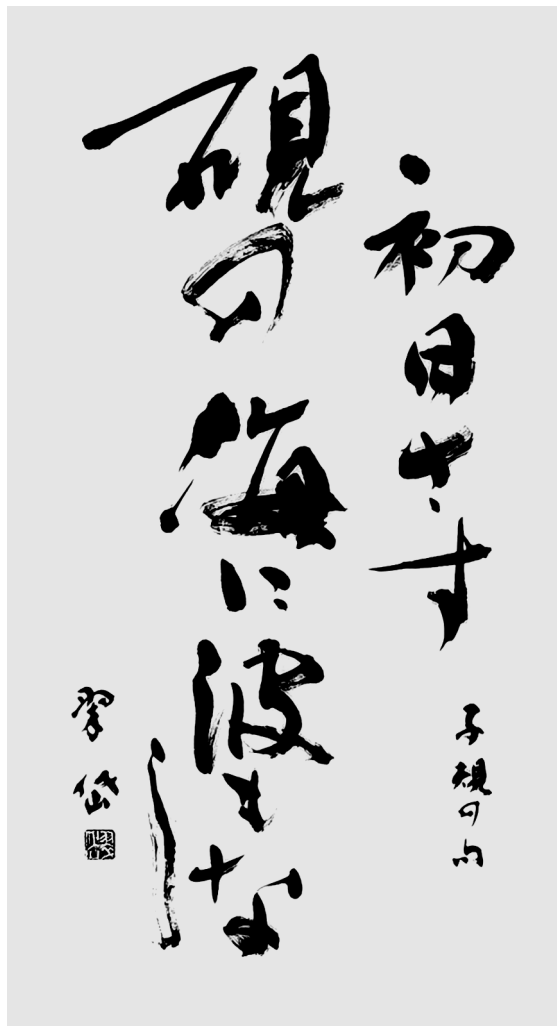 初日さす
子規の句
硯の海に波もなし
翠岱